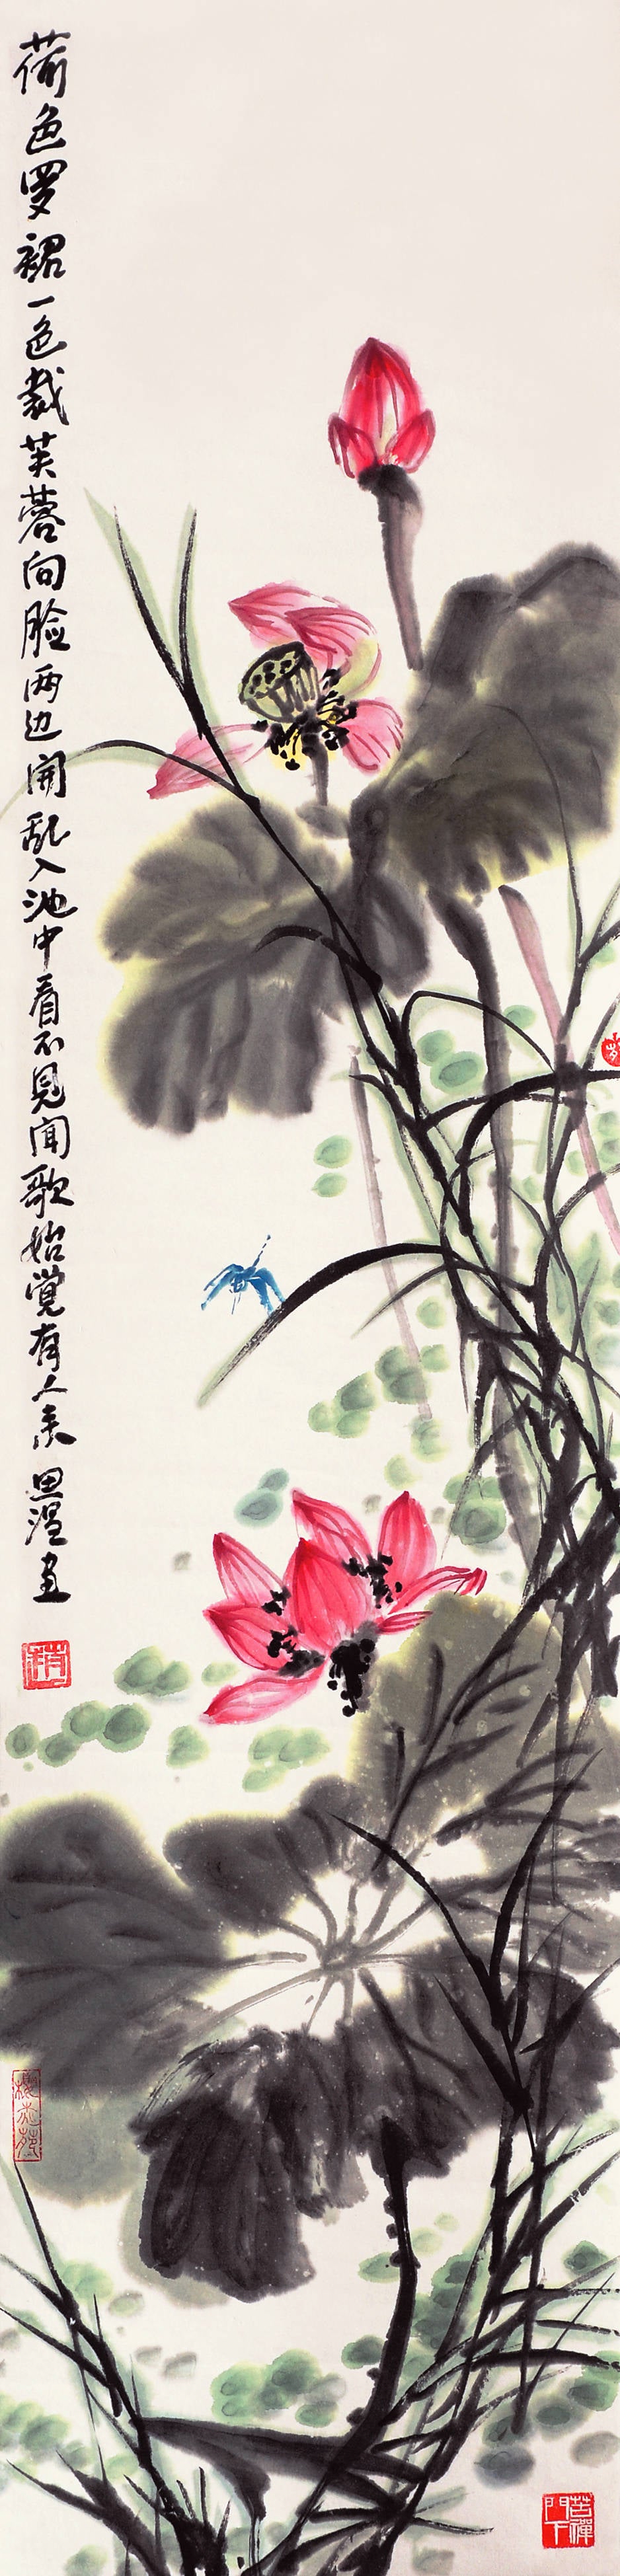 荷色罗裙一色裁芙蓉向脸两边开乱入池中看不见闻歌始觉有人来 思温画
苦禅門下